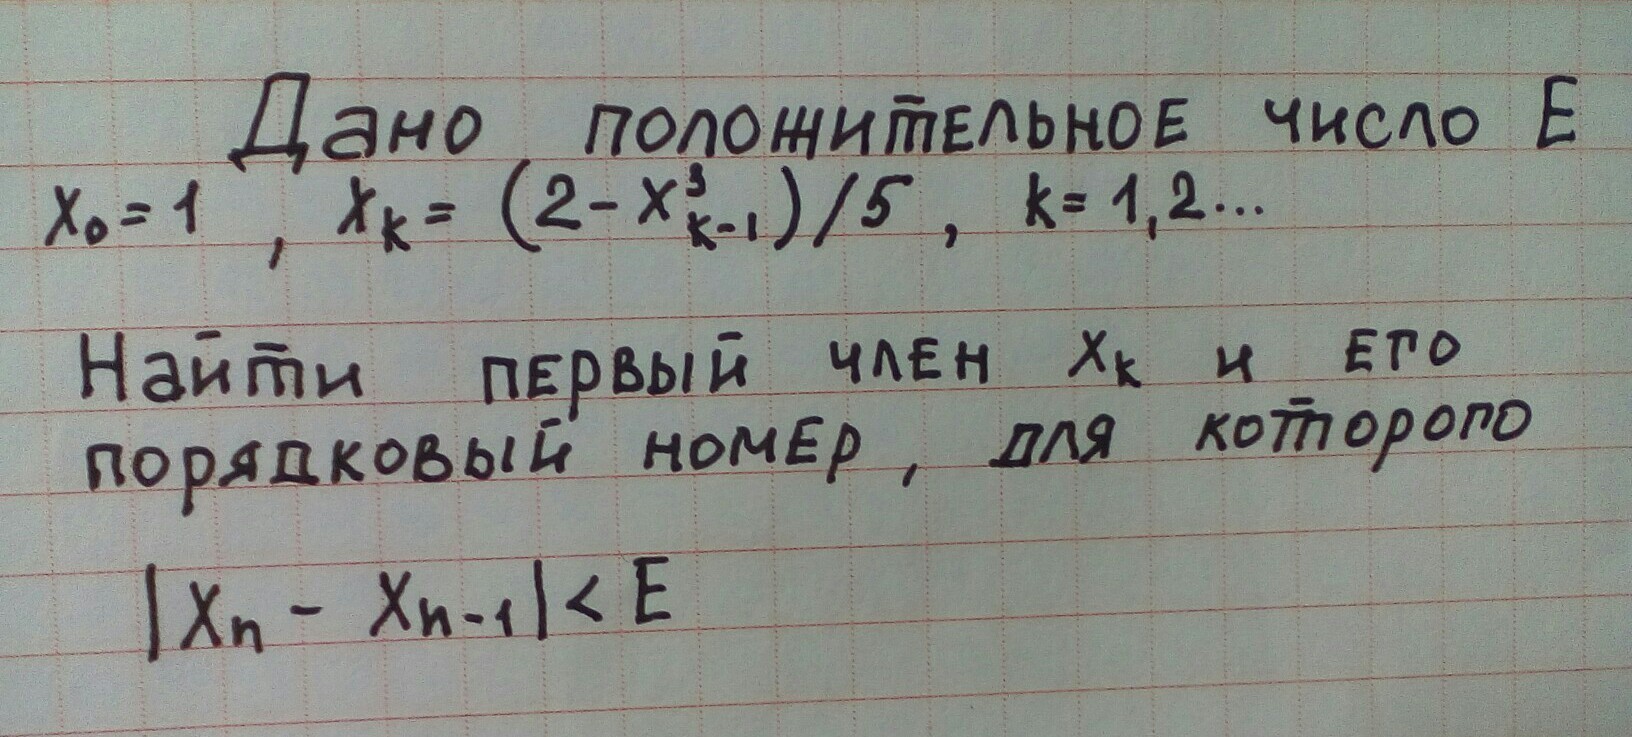 Дано положительное число E
x₀ = 1 , xₖ = (2 - x³ₖ₋₁)/5 , k = 1,2...
Найти первый член xₖ и его
порядковый номер , для которого
|xₙ - xₙ₋₁| < E